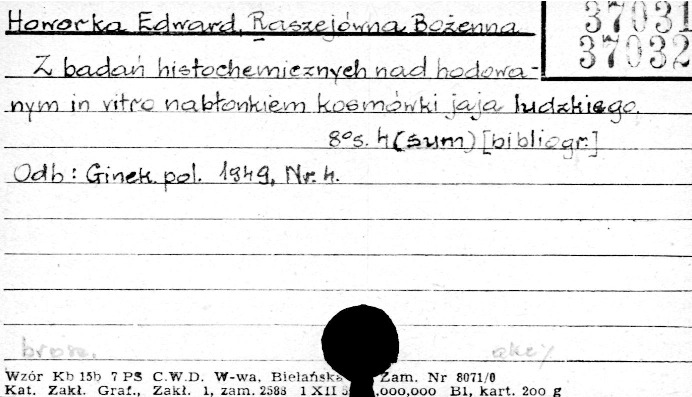 Howorka Edward, Raszejówna Bożenna
37031
37032
Z badań histochemicznych nad hodowa-
nym in vitro nabłonkiem kosmówki jaja ludzkiego.
8° s. 4 (sum) [bibliogr.]
Odb: Ginek. pol. 1949, Nr. 4.
brosz.
Wzór Kb 15b 7 PS C.W.D. W-wa, Bielańska Zam. Nr 8071/0
Kat. Zakł. Graf., Zakł. 1, zam. 2588 1 XII 5 .000,000 B1, kart. 200 g